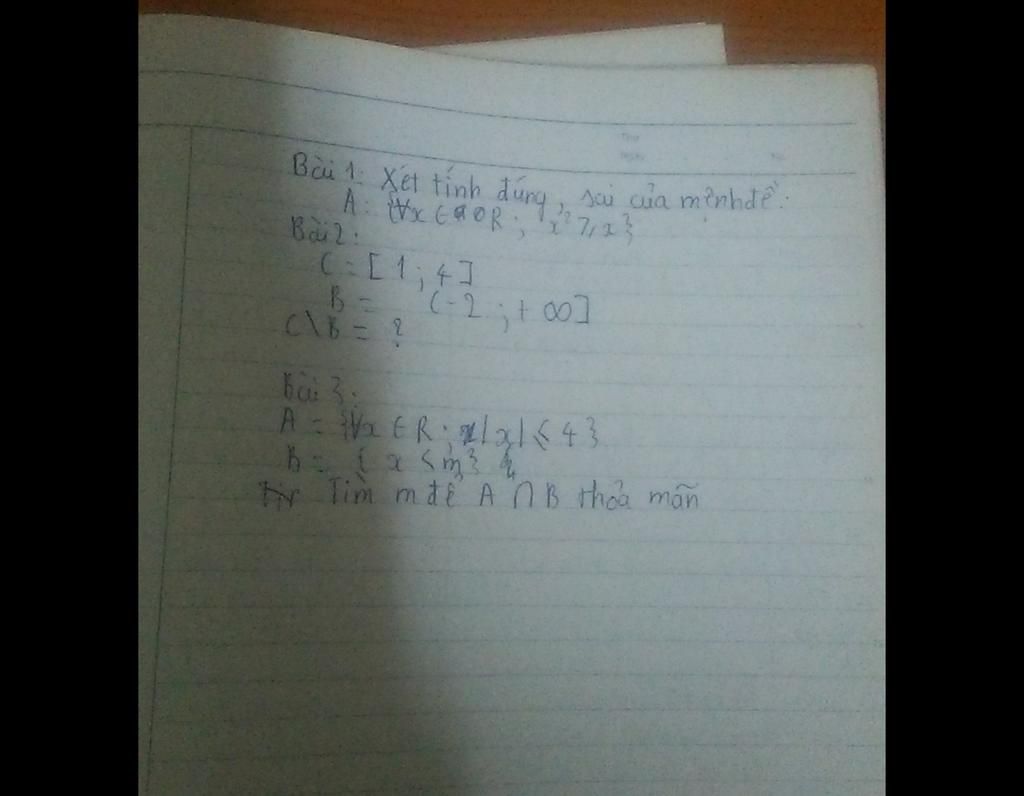 Bài 1: Xét tính đúng, sai của mệnh đề:
A: {∀x ∈ R; x² ≥ x}
Bài 2:
C = [1; 4]
B = (-2; +∞]
C\B = ?
Bài 3:
A = {∀x ∈ R; |x| ≤ 4}
B = { x < m}
Tìm m để A ∩ B thỏa mãn